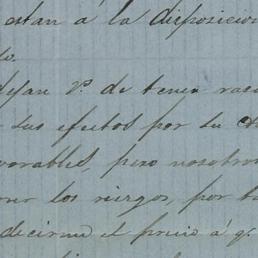 estan á la disposicion
do.
dejan V. de tener raz
sus efectos por la
vorables, pero nosotros
los riesgos, por
decirme el precio á q.